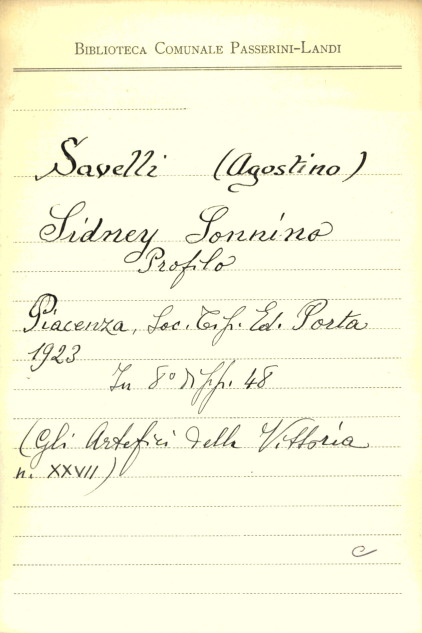 BIBLIOTECA COMUNALE PASSERINI-LANDI
Savelli (Agostino)
Sidney Sonnino
Profilo
Piacenza, Soc. Tip. Ed. Porta
1923
In 8° di pp. 48
(Gli Artefici della Vittoria
n. XXVII)
c